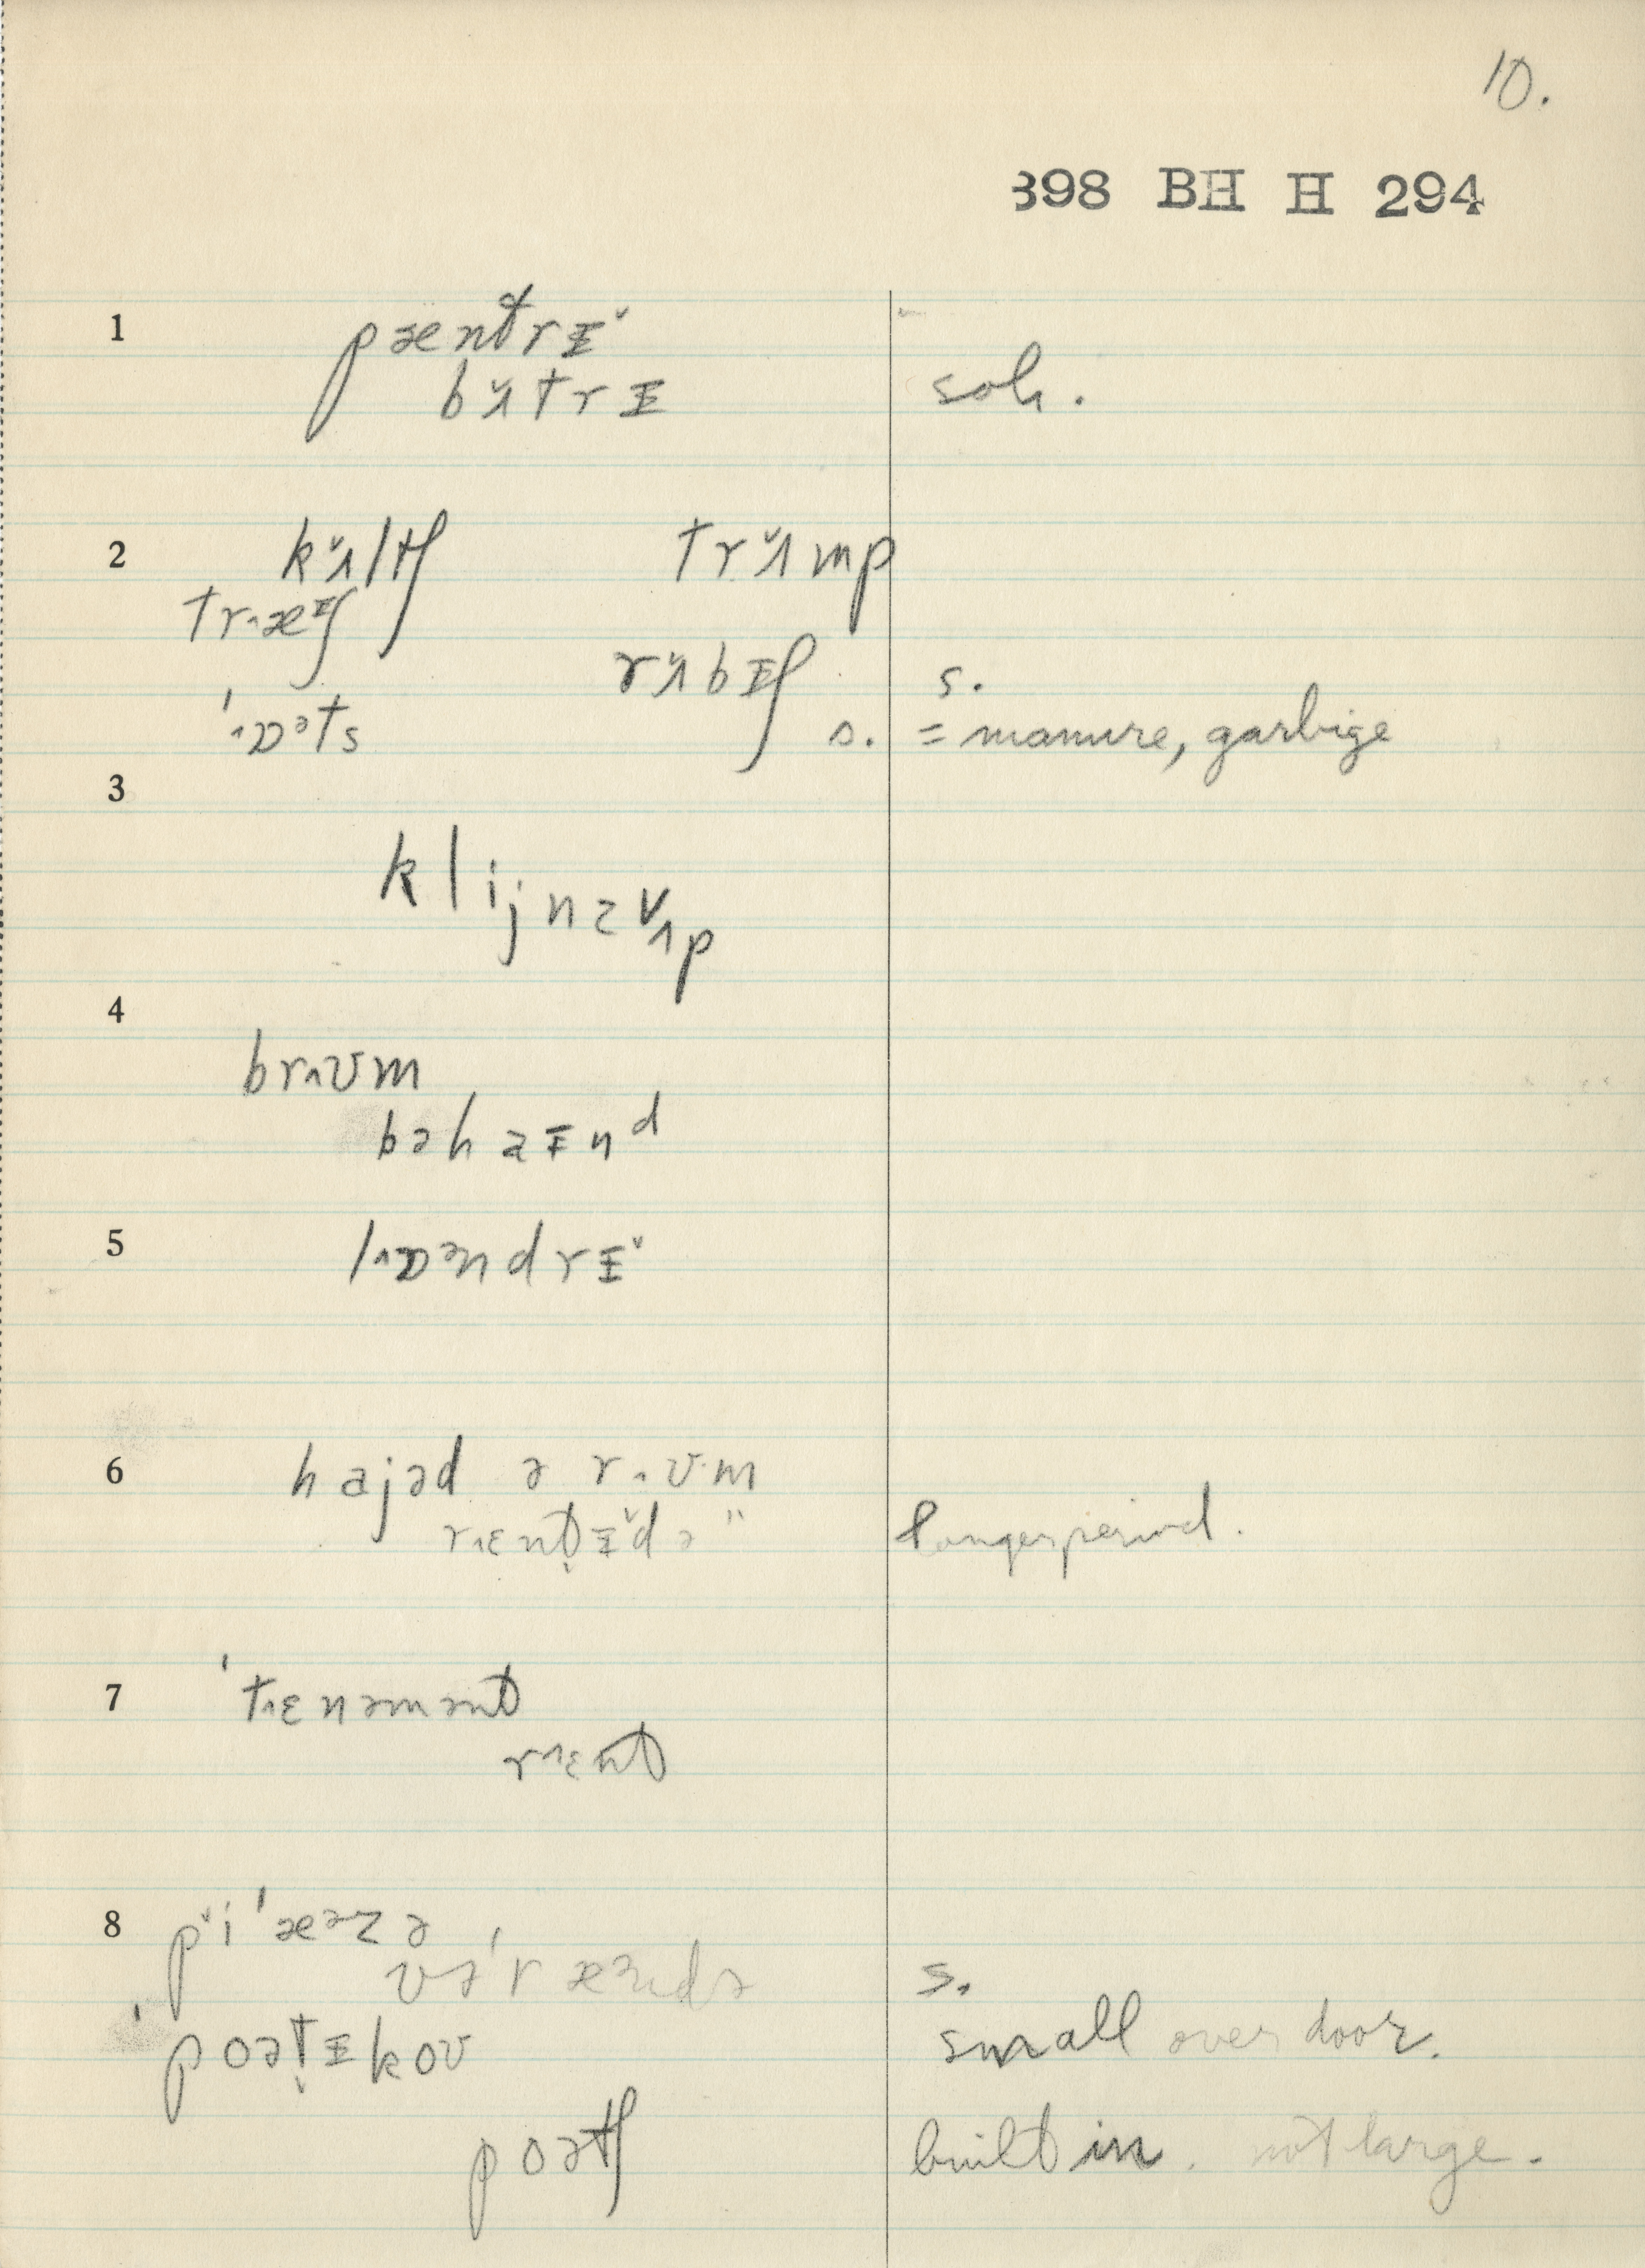 10.
398 BH H 294
1 pæntrɪ̵ˇ
bʌ̌trɪ̵ soh.
2 kʌ̌ltʃ trʌ̌mp
træᶦʃ
rʌ̌bɪ̵ʃ s.
'ɒᵊts s. = manure, garbige
3
klijnzʌ̌p
4
brʊm
bəhaɪ̵nᵈ
5 lɒᵊndrɪ̵ˇ
6 hajəd ə rʊm
rɛntɪ̵ˇd ə " longer period.
7 'tɛnəmənt
rɛnt
8 pˇi'æᵊzə
və'rændə s.
'poətɪ̵koʊ small over door.
poətʃ built in. not large.